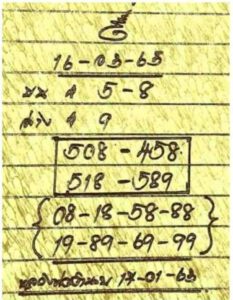 16-03-63
บน 4 5-8
ล่าง 4 9
508 - 458
518 - 589
08-18-58-88
19-89-69-99
17-01-63